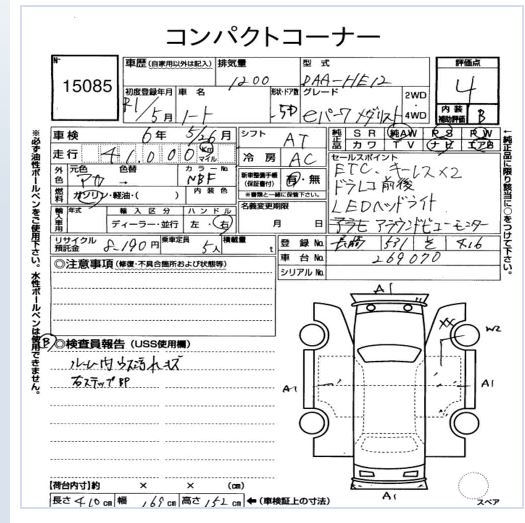 コンパクトコーナー
No.
15085
車歴 (自家用以外は記入) 排気量 1200 型式 DAA-HE12
評価点 4
内装補助評価 B
初度登録年月 R1/5月 車名 ノート 形状・ドア数 5D グレード e-パワーメダリスト 2WD・4WD
車検 6年 5/26月 シフト AT
純正品 SR 純AW PS PW
カワ TV ナビ エアB
走行 41,000 Km マイル 冷房 AC
外色 元色 アカ 色替 → カラーNo. NBF
燃料 ガソリン・軽油・( ) 内装色
新車整備手帳(保証書付) 有・無
※書類と一緒に保管下さい。
輸入車用 年式 輸入区分 ディーラー・並行 ハンドル 左・右
名義変更期限 月 日
セールスポイント
ETC、キーレス×2
ドラレコ前後
LEDヘッドライト
アラウンドビューモニター
リサイクル預託金 8,190円 乗車定員 5人 積載量 t
登録No. 長崎 531 そ 416
車台No. 269070
シリアルNo.
◎注意事項 (修復・不具合箇所および状態等)
B ◎検査員報告 (USS使用欄)
ルーム内ウス汚れキズ
右ステップ凹
A1
W2
A1
A1
A1
スペア
【荷台内寸】約 × × (cm)
長さ 410 cm 幅 169 cm 高さ 152 cm ←(車検証上の寸法)
※必ず油性ボールペンをご使用下さい。水性ボールペンは使用できません。
←純正品に限り該当に○をつけて下さい。